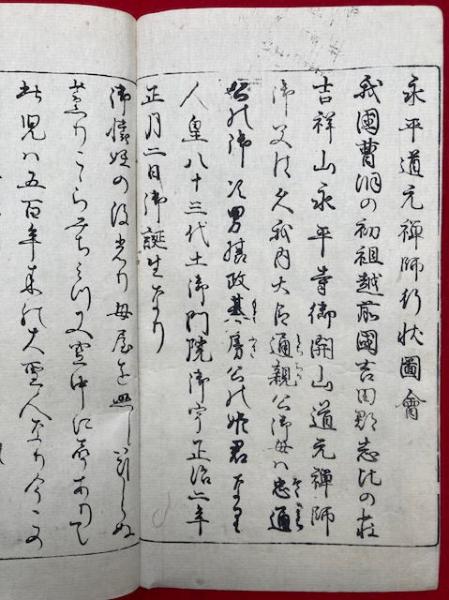 永平道元禅師行状圖會
我國曹洞の初祖越前國吉田郡志比の莊
吉祥山永平寺御開山道元禅師
御父は久我内大臣通親公御母は忠通
御次男摂政基房公の姫君なり
人皇八十三代土御門院御宇正治二年
正月二日御誕生なり
御懐妊の後光り母屋を照し
薫り又空中に聲ありて
此児は五百年来の大聖人なり今この